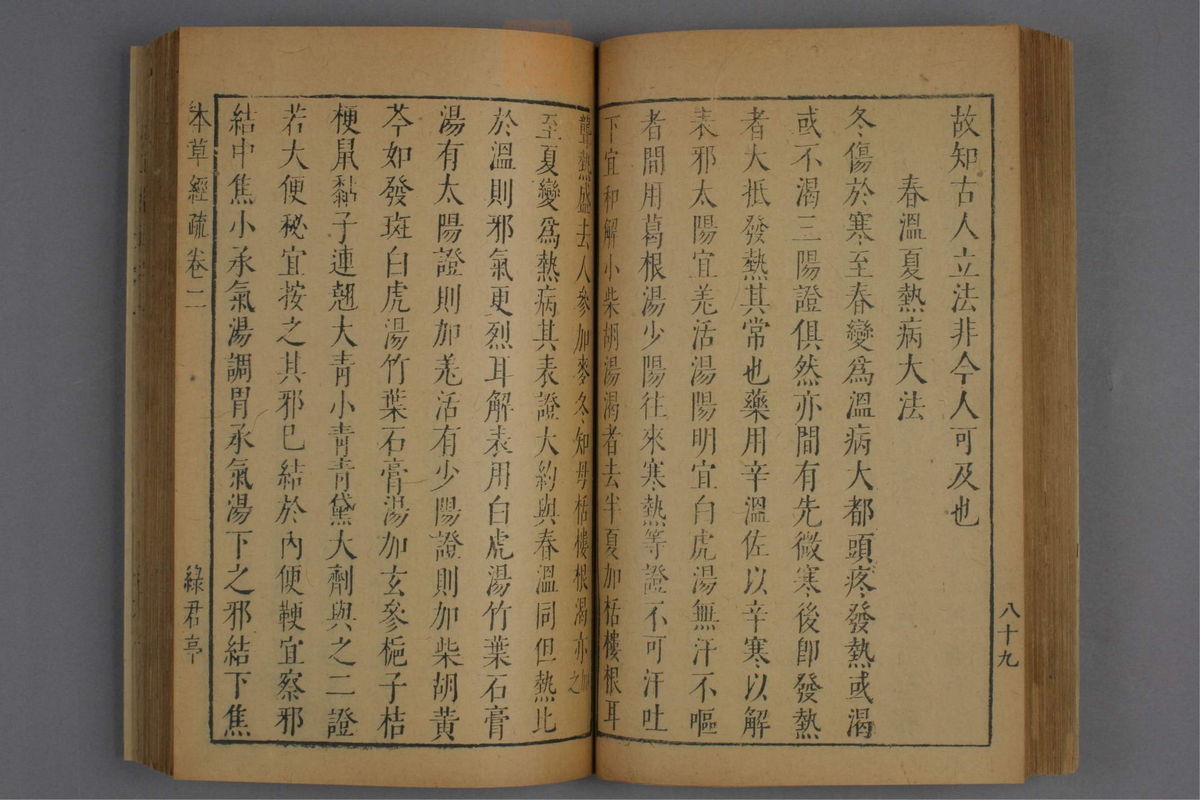 八十九
故知古人立法非今人可及也
春溫夏熱病大法
冬傷於寒至春變爲溫病大都頭疼發熱或渴
或不渴三陽證俱然亦間有先微寒後卽發熱
者大抵發熱其常也藥用辛溫佐以辛寒以解
表邪太陽宜羌活湯陽明宜白虎湯無汗不嘔
者間用葛根湯少陽往來寒熱等證不可汗吐
下宜和解小柴胡湯渴者去半夏加栝樓根耳
聾熱盛去人參加麥冬知母栝樓根渴亦加之
至夏變爲熱病其表證大約與春溫同但熱比
於溫則邪氣更烈耳解表用白虎湯竹葉石膏
湯有太陽證則加羌活有少陽證則加柴胡黃
芩如發斑白虎湯竹葉石膏湯加玄參梔子桔
梗鼠黏子連翹大青小青青黛大劑與之二證
若大便秘宜按之其邪已結於內便鞕宜察邪
結中焦小承氣湯調胃承氣湯下之邪結下焦
本草經疏 卷二
綠君亭